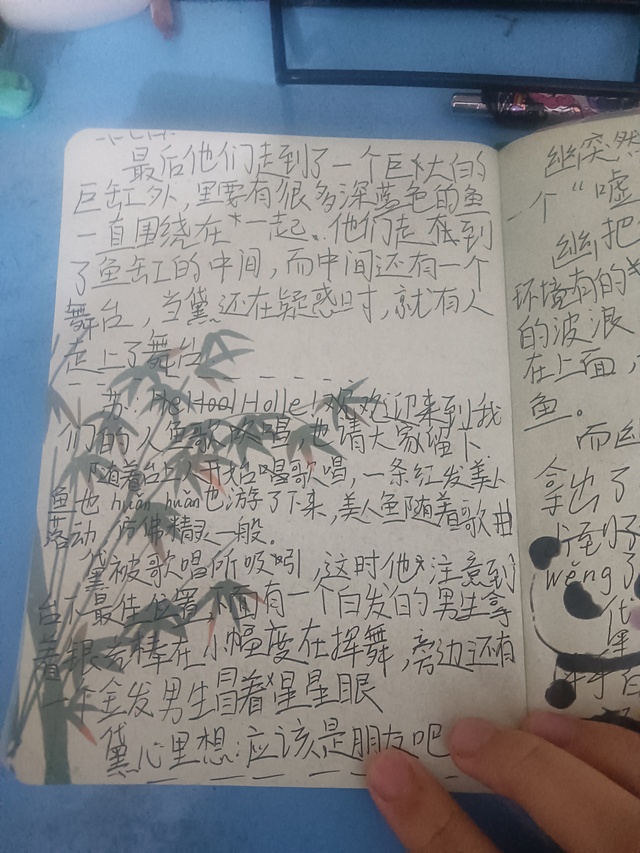 最后他们走到了一个巨大白的
巨缸外,里要有很多深蓝色的鱼
一直围绕在一起..他们走到
了鱼缸的中间,而中间还有一个
舞台,当黛还在疑惑时,就有人
走上了舞台
苏: Hello! 欢迎来到我
们的人鱼歌唱,也请大家留下
随着台上人开始唱歌唱,一条红发美人
鱼也huǎn huǎn也游了下来,美人鱼随着歌曲
落动仿佛精灵一般。
黛被歌唱所吸引,这时他注意到
台下最佳位置下面有一个白发的男生拿
着银光棒在小幅度在挥舞,旁边还有
一个金发男生冒着星星眼
黛心里想:应该是朋友吧
幽突然
一个“嘘
幽把
环境有的
的波浪
在上面,
鱼。
而幽
拿出了
wěng了